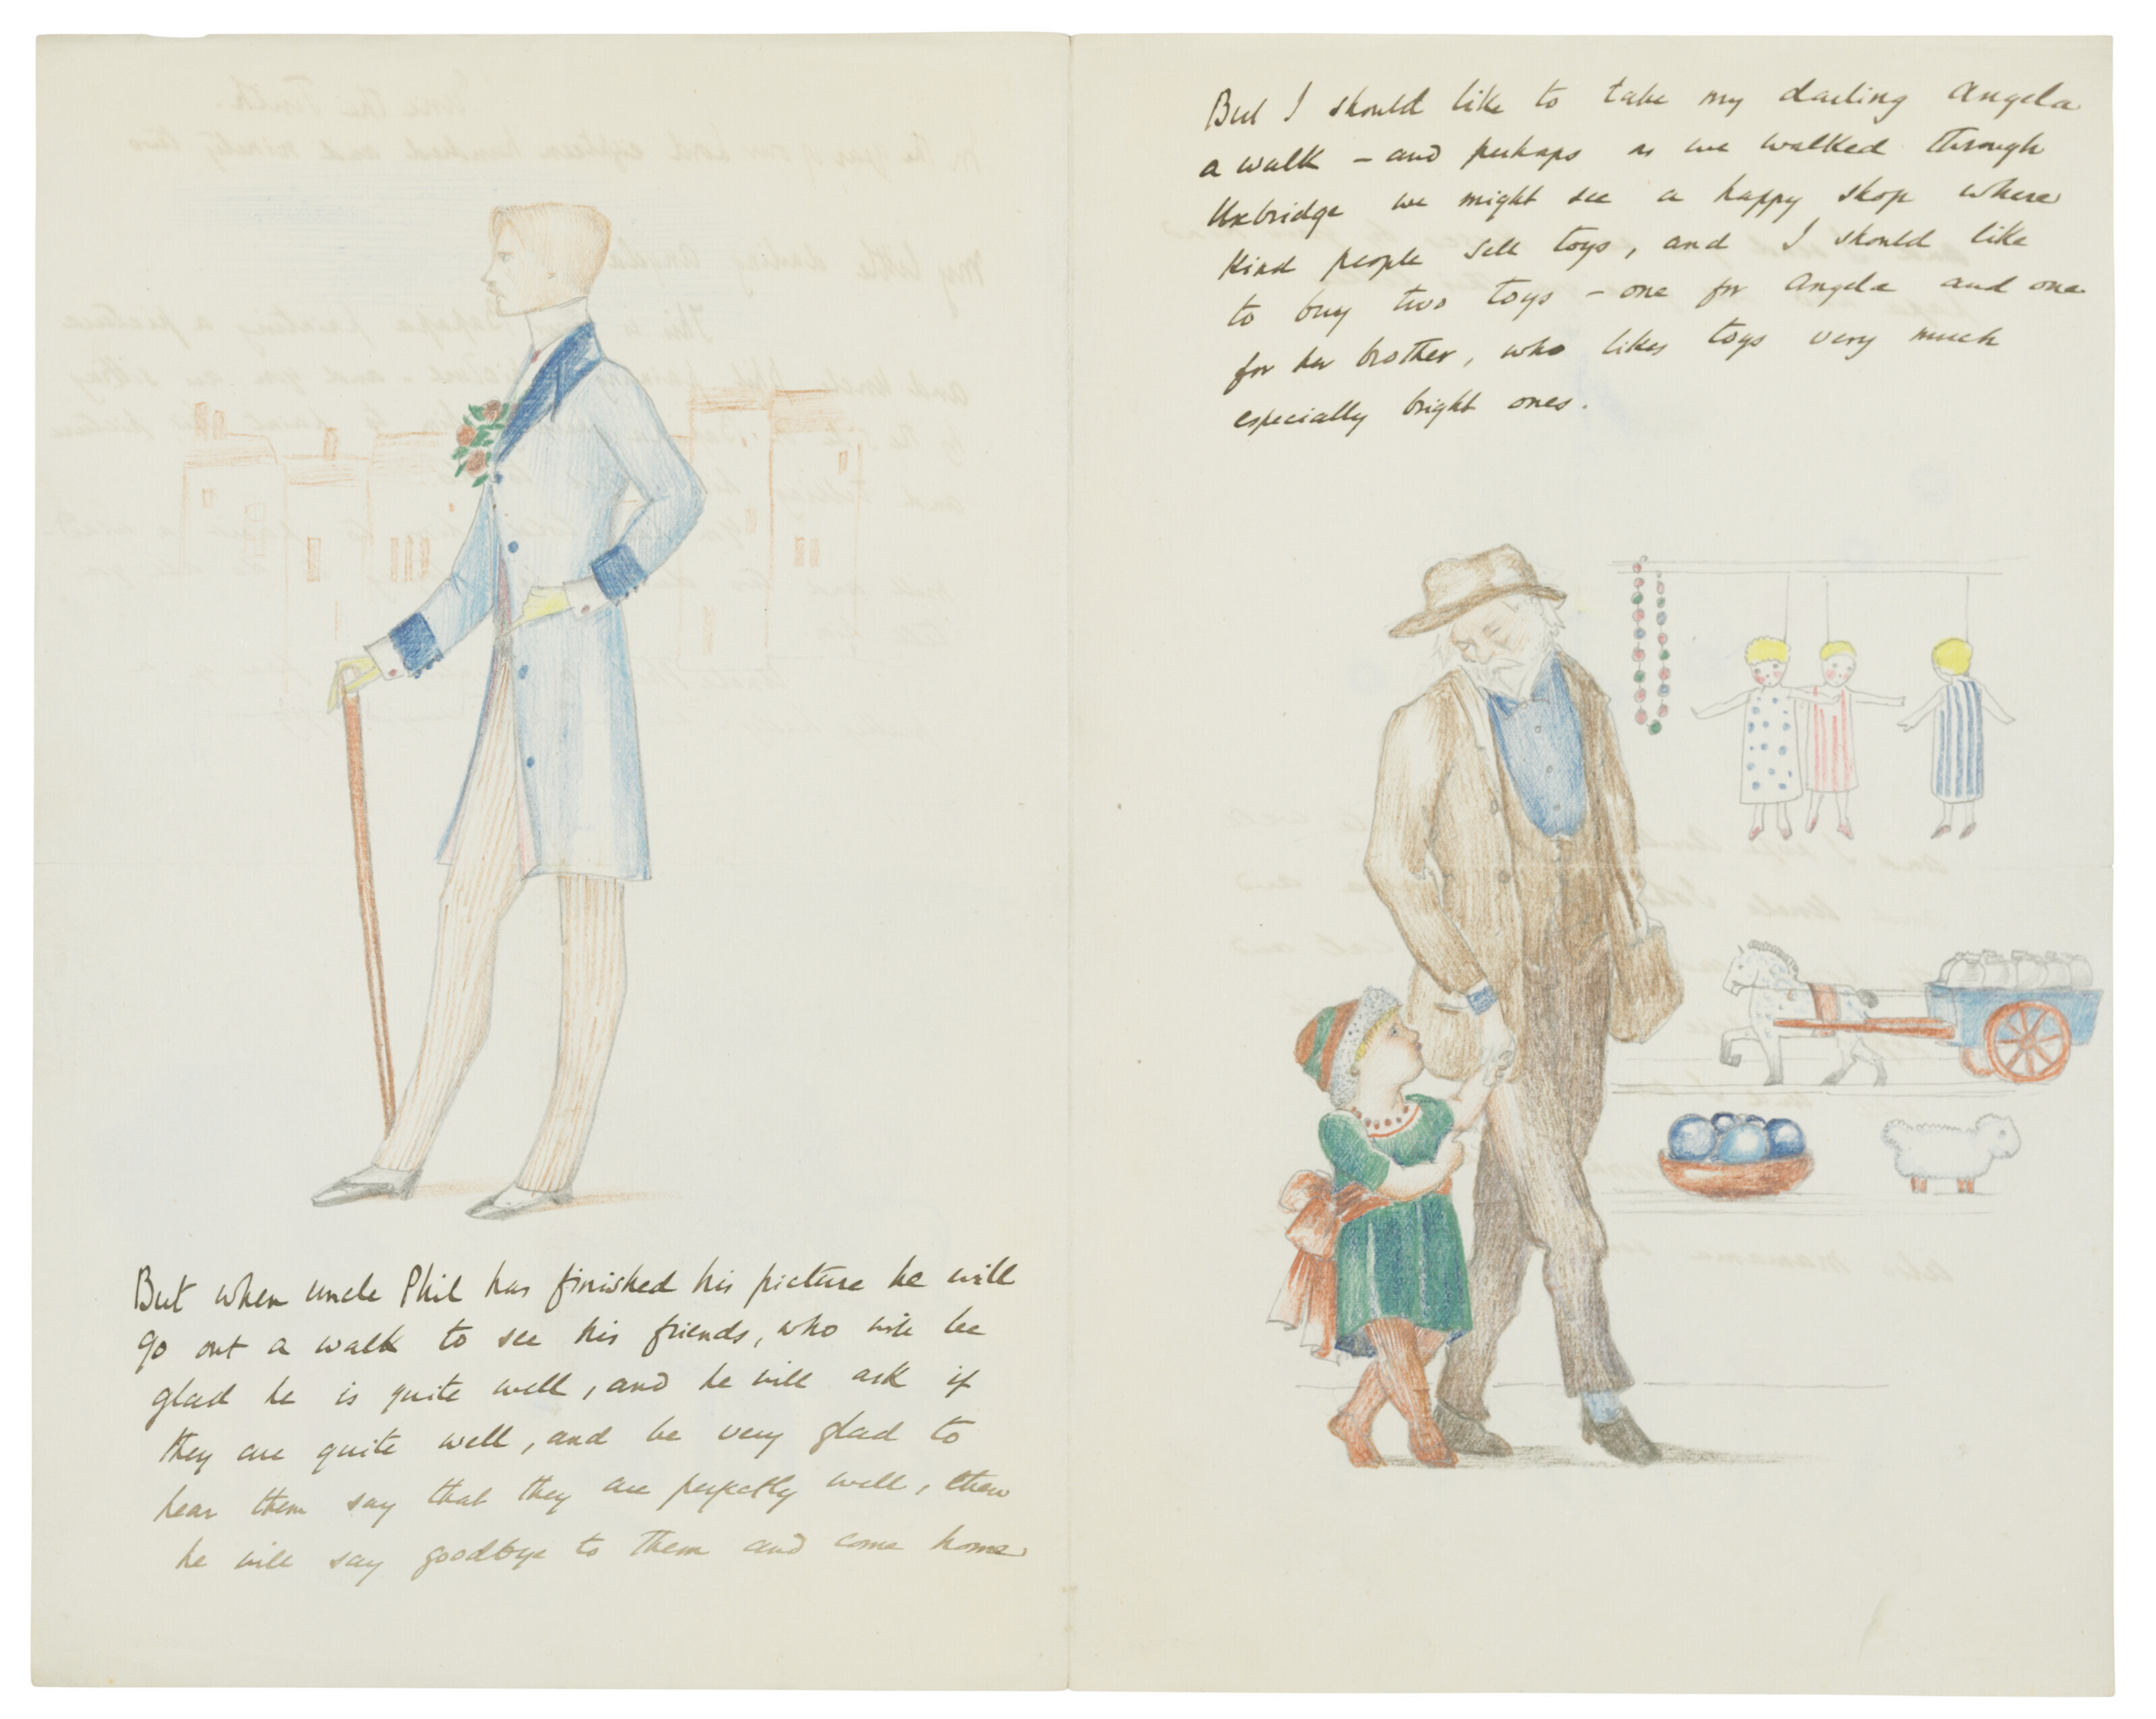 But when uncle Phil has finished his picture he will
go out a walk to see his friends, who will be
glad he is quite well, and he will ask if
they are quite well, and be very glad to
hear them say that they are perfectly well, then
he will say goodbye to them and come home
But I should like to take my darling Angela
a walk – and perhaps as we walked through
Uxbridge we might see a happy shop where
kind people sell toys, and I should like
to buy two toys – one for Angela and one
for her brother, who likes toys very much
especially bright ones.